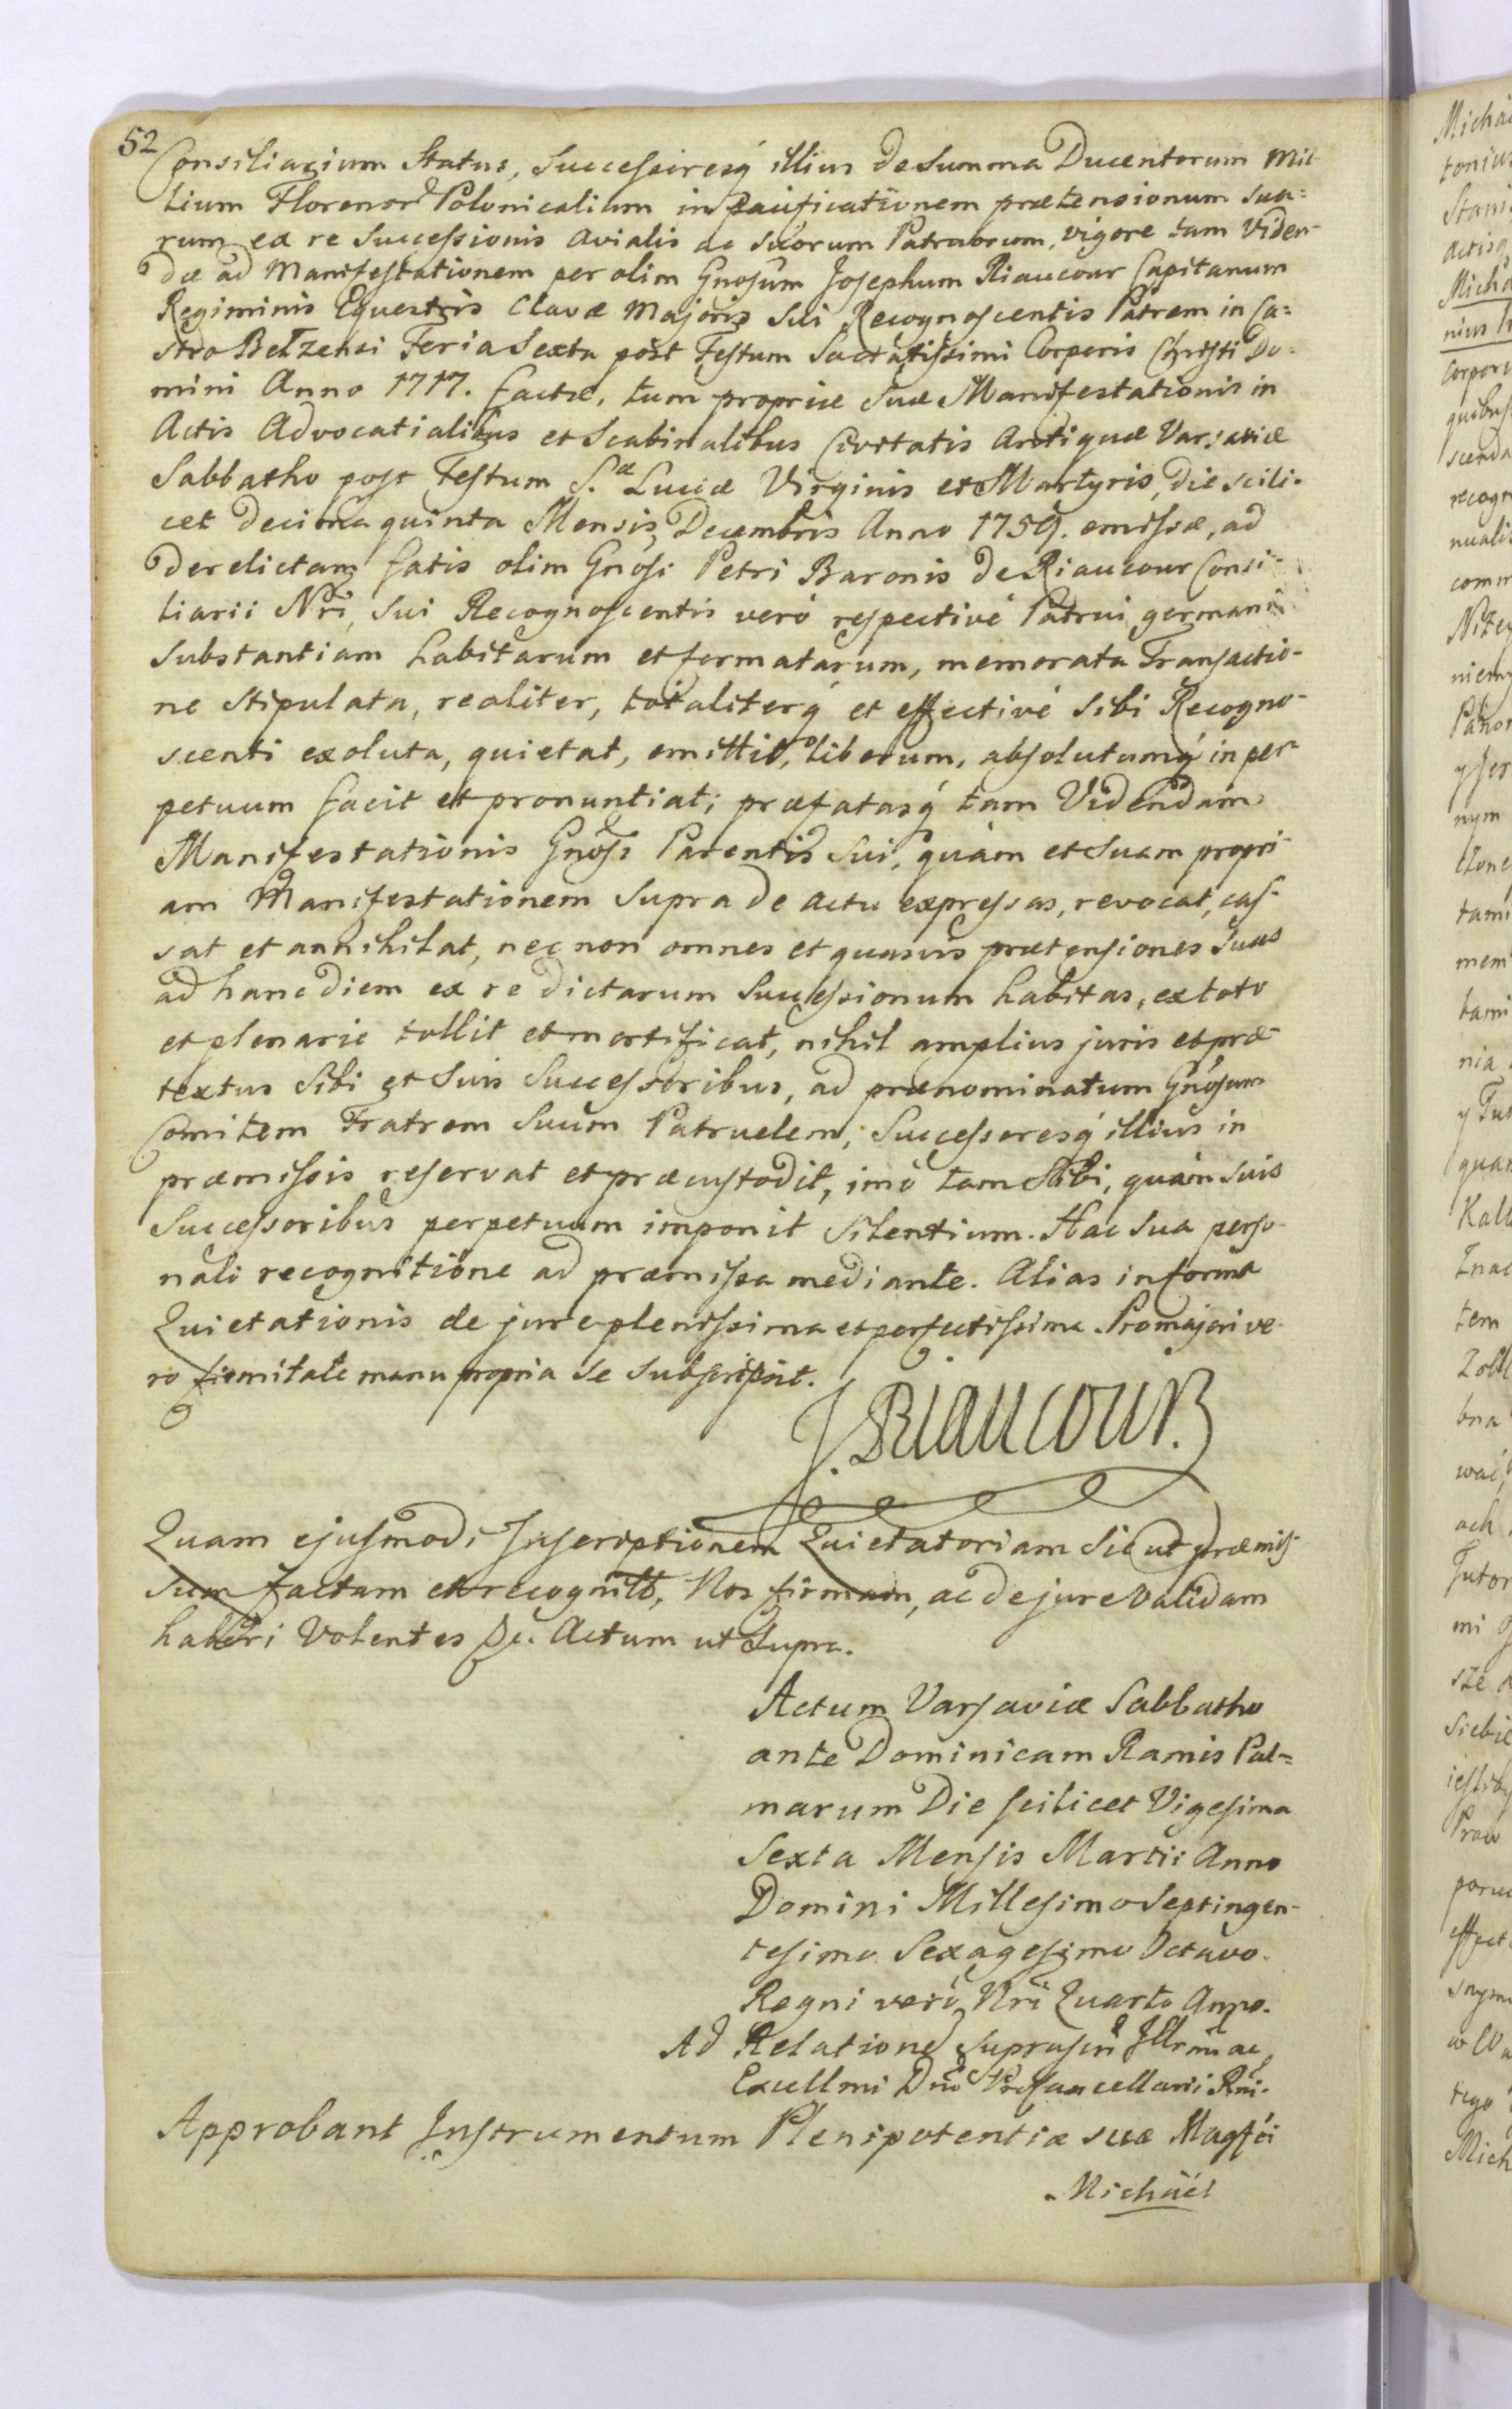 52
Consiliarium Status, Successoresq́ illius de Summa Ducentorum Mil
lium Florenor̃ Polonicalium in pacificationem prætensionum sua=
rum ex re Successionis Avialis ac suorum Patruorum, vigore tam Viden-
dæ ad Manifestationem per olim Gnosum Josephum Riaucour Capitanum
Regiminis Equestris Clavæ Majoris sui Recognoscentis Patrem in Ca=
stro Betzensi Feria Sexta post Festum Sacratissimi Corporis Christi Do=
mini Anno 1717. factæ, tum propriæ suæ Manifestationis in
Actis Advocatialibus et Scabinalibus Civitatis Antiquæ Varsaviæ
Sabbatho post Festum S.æ Luciæ Virginis et Martyris, die scili-
cet decima quinta Mensis Decembris Anno 1759. emissæ, ad
derelictam fatis olim Gnosi Petri Baronis de Riaucour Consi-
liarii Nr̃i, sui Recognoscentis veró respectivé Patrui germani
substantiam habitarum et formatarum, memorata Transactio-
ne stipulata, realiter, totaliterq́ et effectivé sibi Recogno-
scenti exoluta, quietat, emittit, liberum, absolutumq́ in per-
petuum facit et pronuntiat; præfatasq́ tam Videndam
Manifestationis Gnosi Parentis sui, quám et suam propri-
am Manifestationem supra de actu expressas, revocat, cas-
sat et annihilat, nec non omnes et quasvis prætensiones suas
ad hanc diem ex re dictarum Successionum habitas, ex toto
et plenarie tollit et mortificat, nihil amplius juris et præ-
textus sibi et suis Successoribus, ad prænominatum Gnosum
Comitem Fratrem suum Patruelem, Successoresq́ illius in
præmissis reservat et præcustodit, imò tam sibi, quám suis
Successoribus perpetuum imponit silentium. Hac sua perso-
nali recognitione ad præmissa mediante. Alias in forma
Quietationis de jure plenissima et perfectissima. Pro majori ve-
ro firmitate manu propria se subscripsit.
J. Riaucour.
Quam ejusmodi Inscriptionem Quietatoriam sic ut præmis-
sum factam et recognit̃, Nos firmam, ac de jure validam
haberi Volentes &c. Actum ut Supra.
Actum Varsaviæ Sabbatho
ante Dominicam Ramis Pal=
marum Die scilicet Vigesima
Sexta Mensis Martii Anno
Domini Millesimo Septingen-
tesimo Sexagesimo Octavo.
Regni veró Nr̃i Quarto Anno.
Ad Relationẽ suprascñ Illrm̃i ac
Excellmi Dnĩ Procancellarii Rni.
Approbant Instrumentum Plenipotentiæ suæ Magfci
Michäel